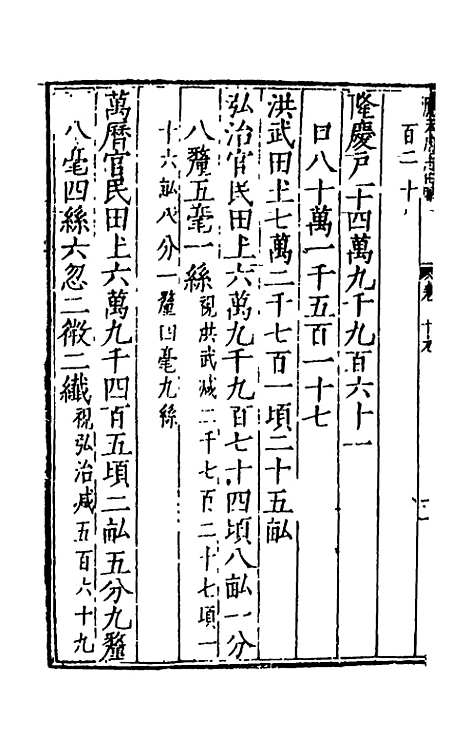 百二十
隆慶戶一十四萬九千九百六十一
口八十萬一千五百一十七
洪武田土七萬二千七百一頃二十五畝
弘治官民田土六萬九千九百七十四頃八畝一分
八釐五毫一絲視洪武減二千七百二十七頃一
十六畝八分一釐四毫九絲
萬曆官民田土六萬九千四百五頃二畝五分九釐
八毫四絲六忽二微二纖視弘治减五百六十九